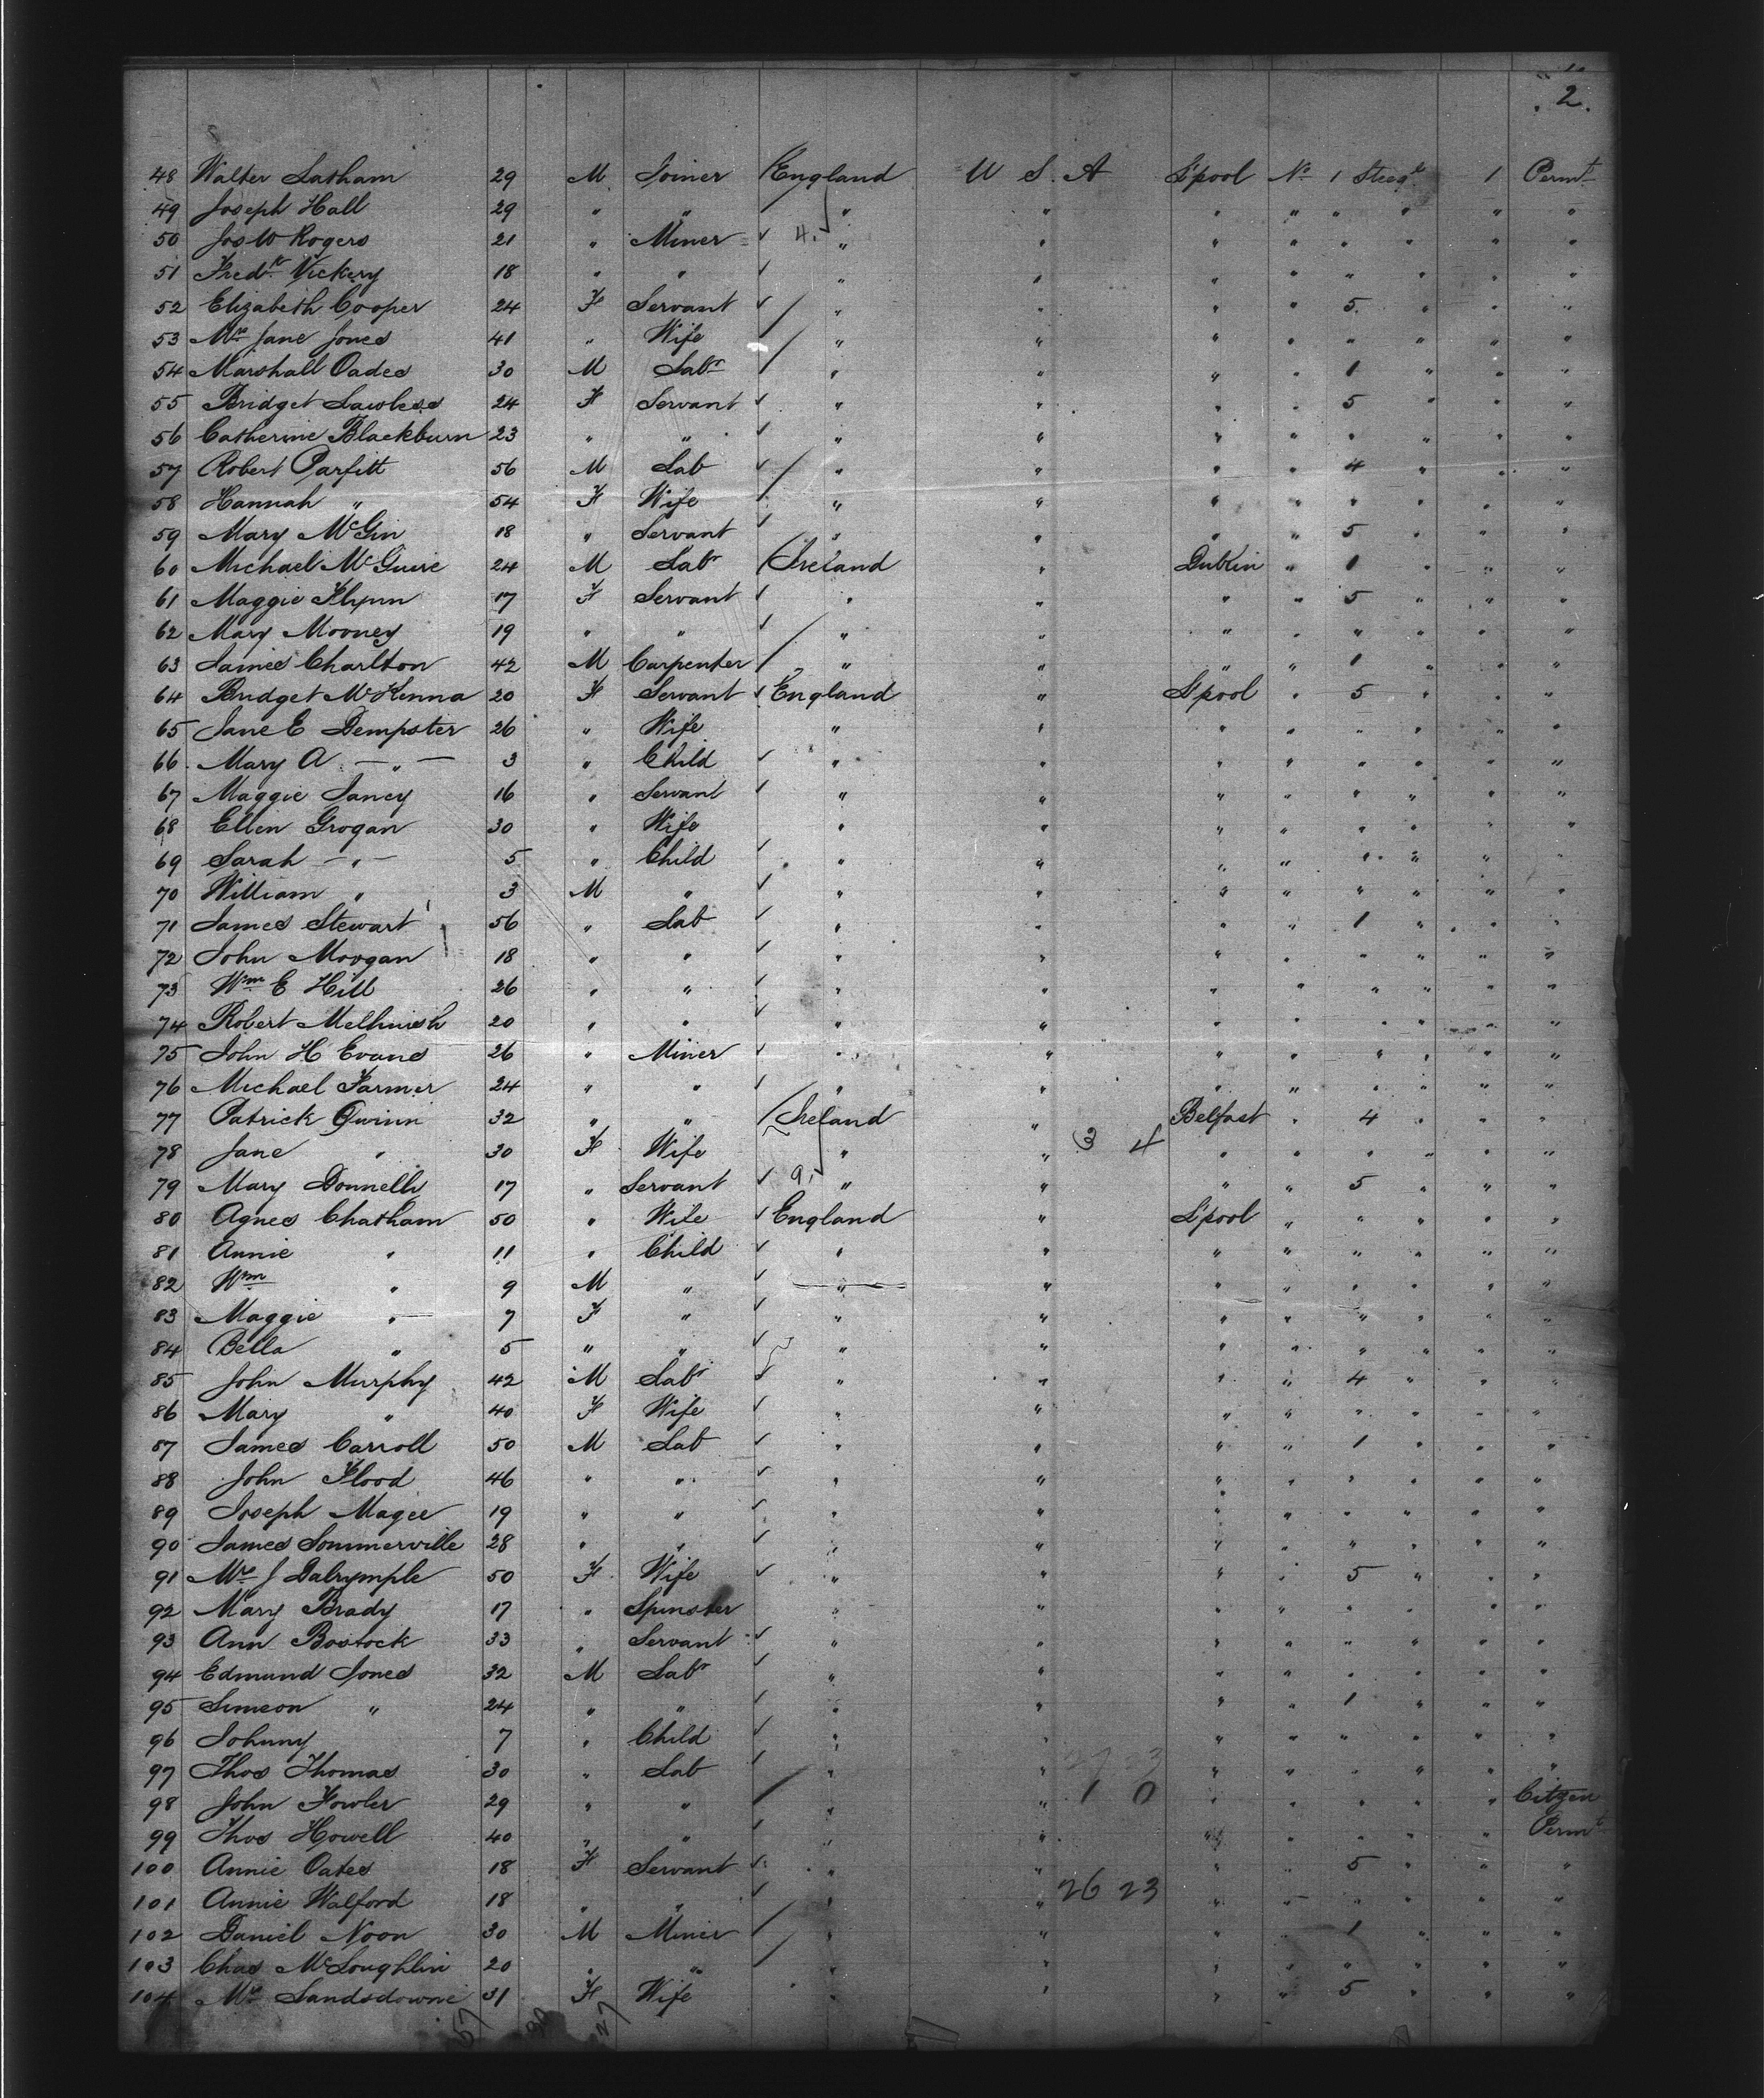 2.
48 Walter Latham 29 M Joiner England U S A L'pool No 1 Steege 1 Permt
49 Joseph Hall 29 " " " " " " " " " "
50 Jos W Rogers 21 " Miner 4. " " " " " " " "
51 Fredk Vickery 18 " " " " " " " " " "
52 Elizabeth Cooper 24 F Servant " " " " 5 " " "
53 Mrs Jane Jones 41 " Wife " " " " " " " "
54 Marshall Oades 30 M Labr " " " " 1 " " "
55 Bridget Lawless 24 F Servant " " " " 5 " " "
56 Catherine Blackburn 23 " " " " " " " " " "
57 Robert Parfitt 56 M Lab " " " " 4 " " "
58 Hannah " 54 F Wife " " " " " " " "
59 Mary McGin 18 " Servant " " " " 5 " " "
60 Michael McGuire 24 M Labr Ireland " Dublin " 1 " " "
61 Maggie Flynn 17 F Servant " " " " 5 " " "
62 Mary Mooney 19 " " " " " " " " " "
63 James Charlton 42 M Carpenter " " " " 1 " " "
64 Bridget McKenna 20 F Servant England " L'pool " 5 " " "
65 Jane E Dempster 26 " Wife " " " " " " " "
66 Mary A — " — 3 " Child " " " " " " " "
67 Maggie Jancy 16 " Servant " " " " " " " "
68 Ellen Grogan 30 " Wife " " " " " " " "
69 Sarah — " — 5 " Child " " " " " " " "
70 William " 3 M " " " " " " " " "
71 James Stewart 56 " Lab " " " " 1 " " "
72 John Moogan 18 " " " " " " " " " "
73 Wm E Hill 26 " " " " " " " " " "
74 Robert Melhuish 20 " " " " " " " " " "
75 John H Evans 26 " Miner " " " " " " " "
76 Michael Farmer 24 " " " " " " " " " "
77 Patrick Quinn 32 " " Ireland " Belfast " 4 " " "
78 Jane " 30 F Wife " " 3 4 " " " " " "
79 Mary Donnelly 17 " Servant 9. " " " " 5 " " "
80 Agnes Chatham 50 " Wife England " L'pool " " " " "
81 Annie " 11 " Child " " " " " " " "
82 Wm " 9 M " " " " " " " " "
83 Maggie " 7 F " " " " " " " " "
84 Bella " 5 " " " " " " " " " "
85 John Murphy 42 M Labr " " " " 4 " " "
86 Mary " 40 F Wife " " " " " " " "
87 James Carroll 50 M Lab " " " " 1 " " "
88 John Flood 46 " " " " " " " " " "
89 Joseph Magee 19 " " " " " " " " " "
90 James Sommerville 28 " " " " " " " " " "
91 Mrs J Dalrymple 50 F Wife " " " " 5 " " "
92 Mary Brady 17 " Spinster " " " " " " " "
93 Ann Bostock 33 " Servant " " " " " " " "
94 Edmund Jones 32 M Labr " " " " " " " "
95 Simeon " 24 " " " " " " 1 " " "
96 Johnny 7 " Child " " " " " " " "
97 Thos Thomas 30 " Lab " " 27 3 " " " " " "
98 John Fowler 29 " " " " 1 0 " " " " " Citzen
99 Thos Howell 40 " " " " " " " " " Permt
100 Annie Oates 18 F Servant " " " " 5 " " "
101 Annie Walford 18 " " " " 26 23 " " " " " "
102 Daniel Noon 30 M Miner " " " " 1 " " "
103 Chas McLoughlin 20 " " " " " " " " " "
104 Mrs Landsdowne 31 F Wife " " " " 5 " " "
57 30 27